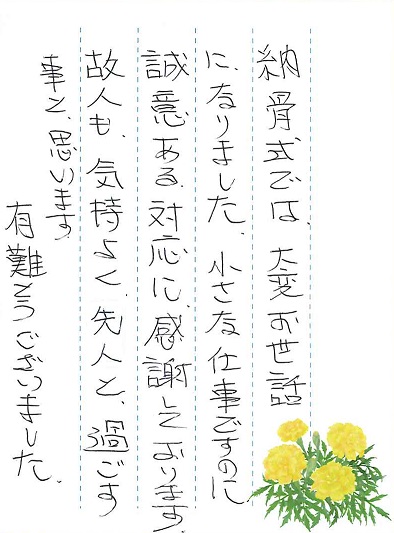 納骨式では、大変お世話
に、なりました、小さな仕事ですのに
誠意ある、対応に、感謝しております、
故人も、気持よく、先人と、過ごす
事と、思います
有難とうございました、